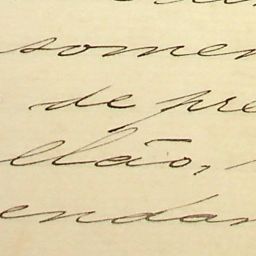 somen
de pre
elão,
endar